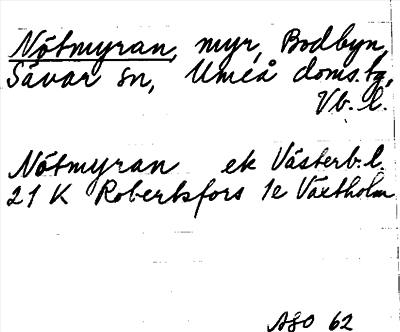 Nötmyran, myr, Bodbyn,
Sävar sn, Umeå doms.tg,
Vb. l.
Nötmyran ek Västerb. l.
21 K Robertsfors 1e Växtholm
ASO 62